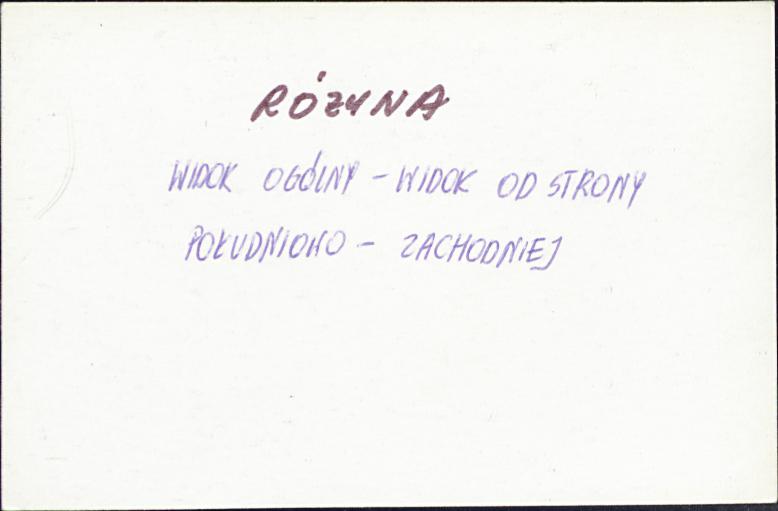 RÓZYNA
WIDOK OGÓLNY - WIDOK OD STRONY
POŁUDNIOWO - ZACHODNIEJ